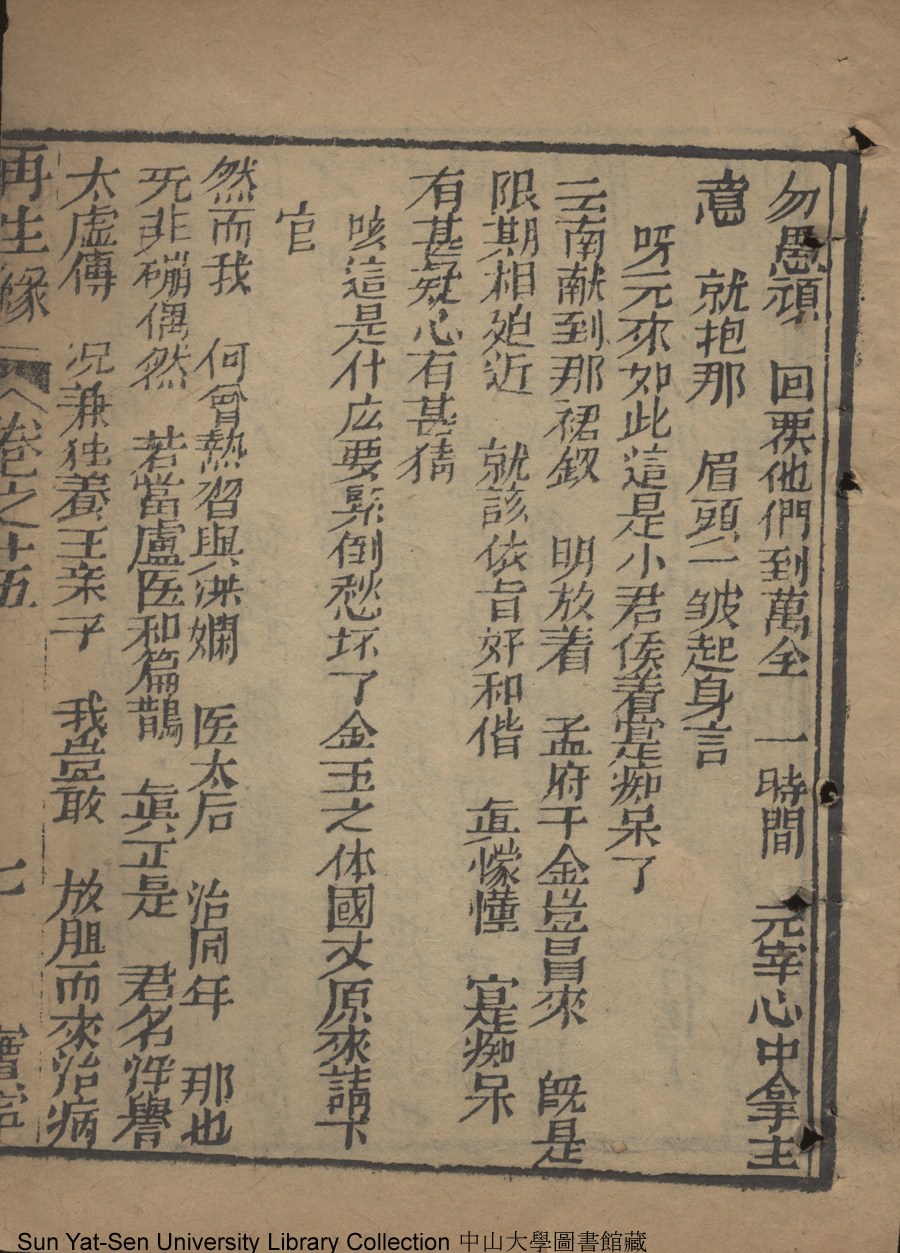 勿愚頑　回覆他們到萬全　一時間　元宰心中拿主
意　就抱那　眉頭一皱起身言
呀元來如此這是小君侯着寔痴呆了
云南献到那裙釵　明放着　孟府千金豈冒來　既是
限期相廹近　就該依旨好和偕　真懞懂　寔是痴呆
有甚疑心有甚猜
咳這是什庅要緊倒愁坏了金玉之体國丈原來請下
官
然而我　何曾熱習與洪斕　医太后　治同年　那也
旡非碰偶然　若當盧医和篇鵲　真正是　君名浮譽
太虛傳　况兼独養王亲子　我豈敢　放胆而來治病
再生緣　卷之十五　七
Sun Yat-Sen University Library Collection 中山大學圖書館藏